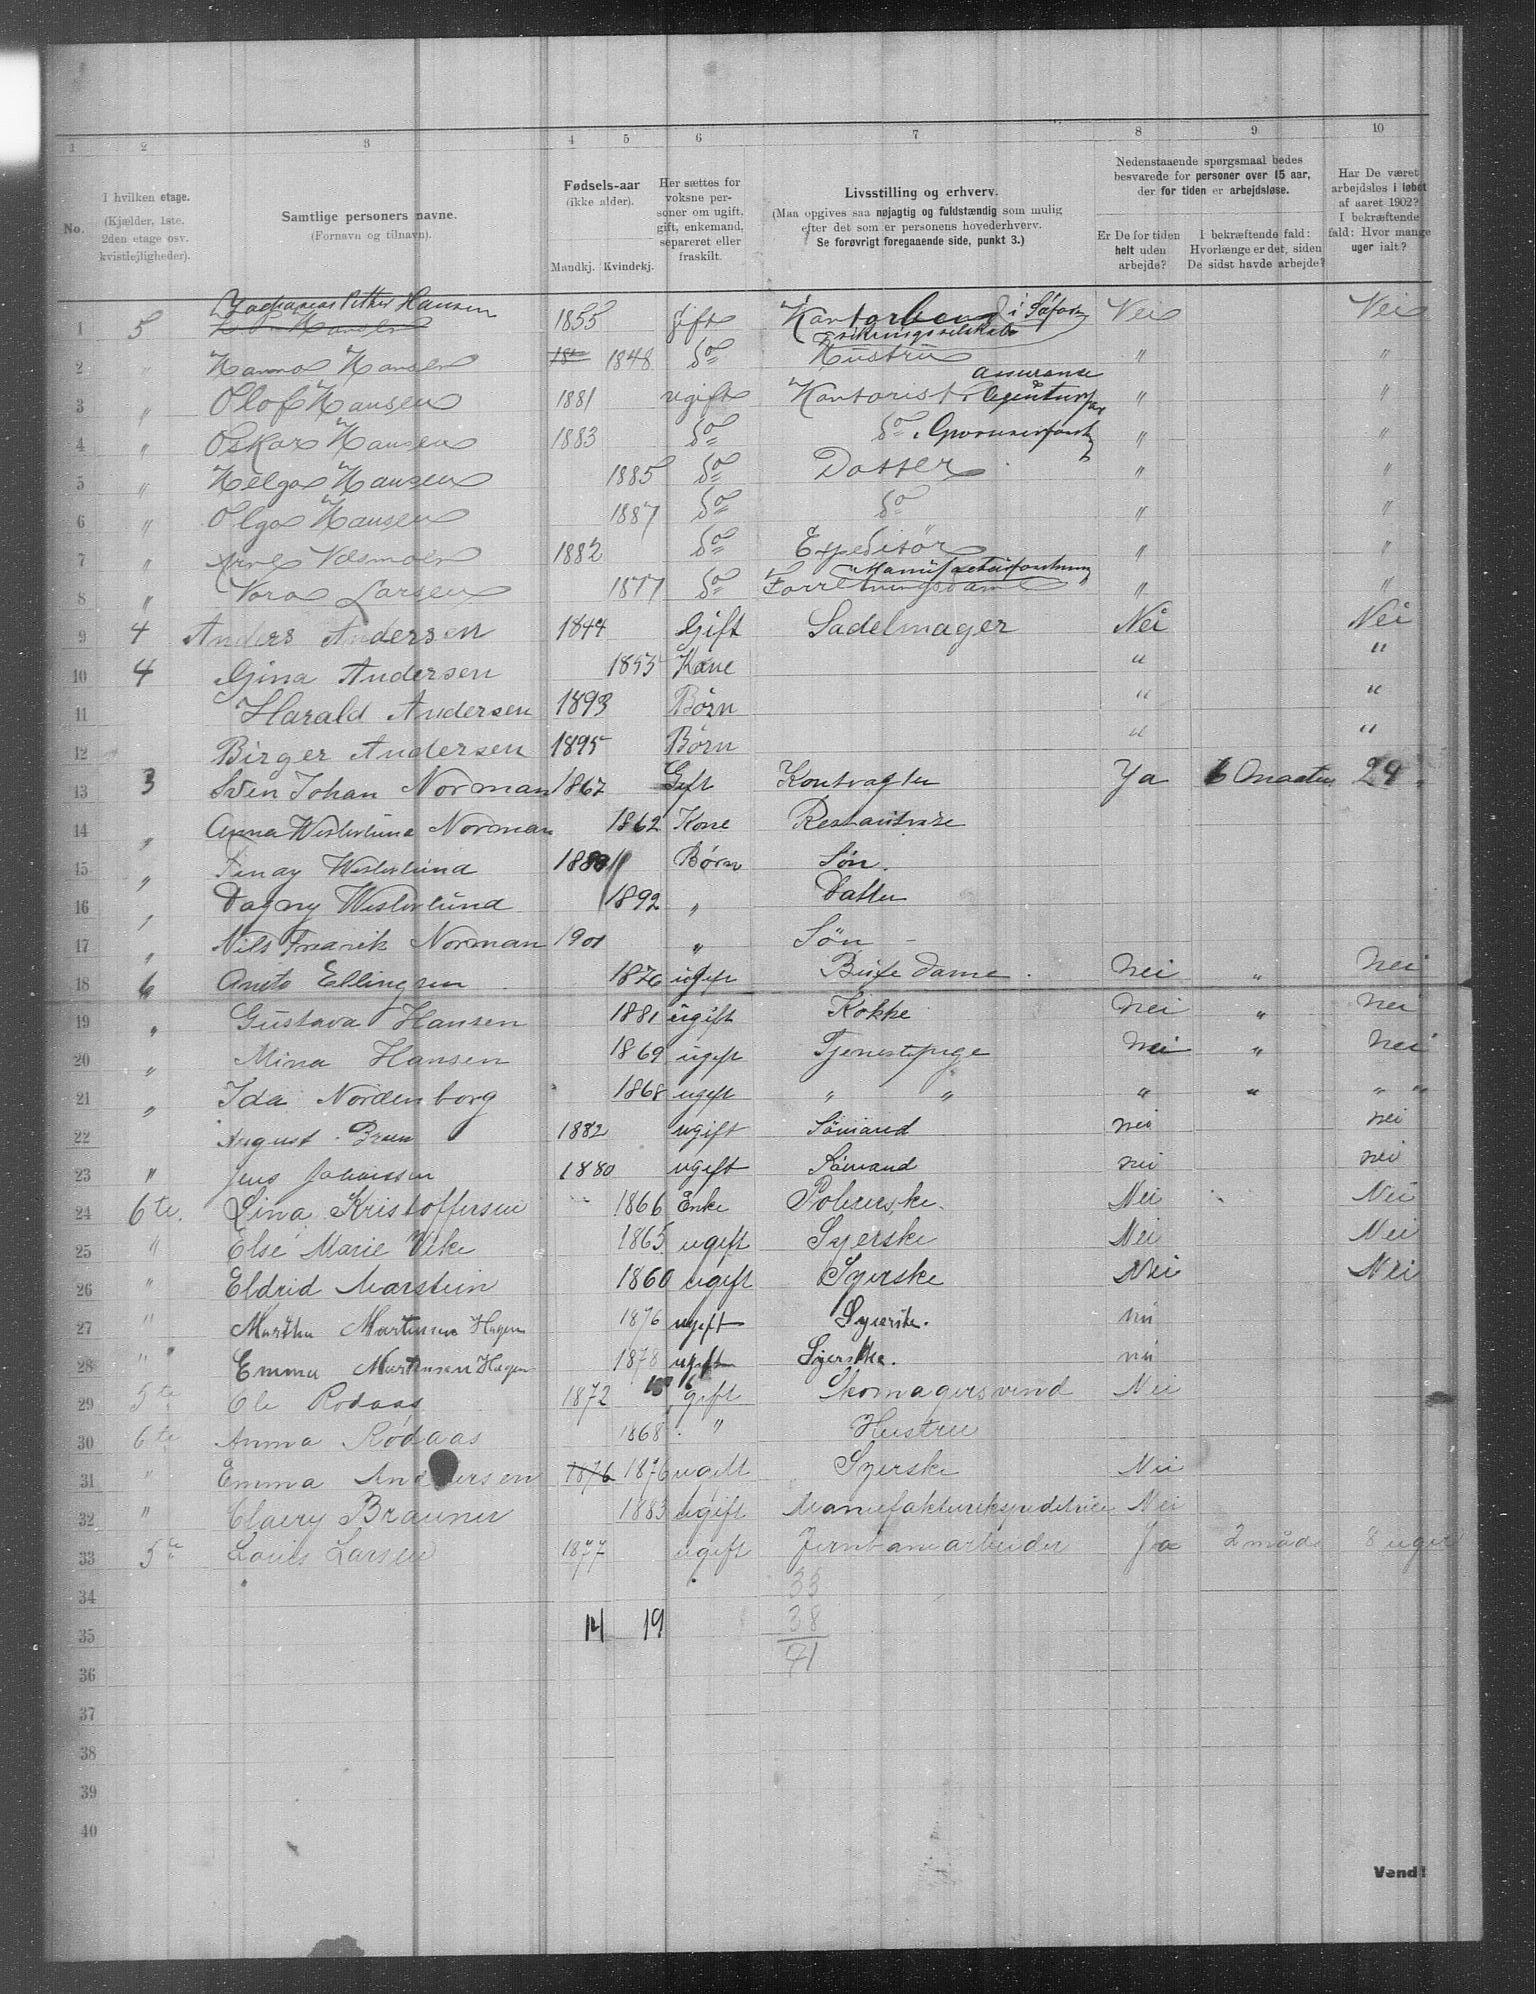 1 2 3 4 5 6 7 8 9 10
No.
I hvilken etage.
(Kjælder, 1ste,
2den etage osv.
kvistlejligheder).
Samtlige personers navne.
(Fornavn og tilnavn).
Fødsels-aar
(ikke alder).
Mandkj. Kvindekj.
Her sættes for
voksne per-
soner om ugift,
gift, enkemand,
separeret eller
fraskilt.
Livsstilling og erhverv.
(Man opgives saa nøjagtig og fuldstændig som mulig
efter det som er personens hovederhverv.
Se forøvrigt foregaaende side, punkt 3.)
Nedenstaaende spørgsmaal bedes
besvarede for personer over 15 aar,
der for tiden er arbejdsløse.
Er De for tiden
helt uden
arbejde?
I bekræftende fald:
Hvorlænge er det, siden
De sidst havde arbejde?
Har De været
arbejdsløs i løbet
af aaret 1902?
I bekræftende
fald: Hvor mange
uger ialt?
1 5 Zacharias Petter Hansen 1855 gift Nei Nei
2 " Hanna Hansen 1848 do Hustru " "
3 " Olof Hansen 1881 ugift Kontorist assurance Agentur " "
4 " Oskar Hansen 1883 do do " "
5 " Helga Hansen 1885 do Datter " "
6 " Olga Hansen 1887 do do " "
7 " Arne 1882 do Expeditør " "
8 " Vora Larsen 1877 do Forretningsdame " "
9 4 Anders Andersen 1844 Gift Sadelmager Nei Nei
10 4 Gina Andersen 1853 Kone " "
11 Harald Andersen 1893 Børn " "
12 Birger Andersen 1895 Børn " "
13 3 Sven Johan Norman 1867 Gift Ya 6 Maaneder 24 "
14 " Anna Westerlund Norman 1862 Kone
15 " Westerlund Børn Søn.
16 " Dagny Westerlund 1892 " Datter
17 " Nils Fredrik Norman 1901 " Søn
18 6 Ellingsen 1876 ugift Bufe dame. Nei " Nei
19 " Gustava Hansen 1881 ugift Kokke nei " nei
20 " Mina Hansen 1869 ugift Tjenestepige Nei " Nei
21 " Ida Nordenborg 1868 ugift " " " " " "
22 August Bruun 1882 ugift Sömand nei nei
23 " Jens Johanssen 1880 ugift Sömand nei nei
24 6te. Lina Kristoffersen 1866 Enke Polererske. Nei Nei
25 " Else Marie Vike 1865 ugift Syerske Nei Nei
26 " Eldrid Marstein 1860 ugift Syerske Nei Nei
27 " Martha Martinsen Hagen 1876 ugift Syerske. nei
28 " Emma Martinsen Hagen 1878 ugift Syerske. nei
29 5te Ole Rodaas 1872 gift Skomagersvend Nei
30 6te Anna Rodaas 1868 " Hustru
31 " Emma Andersen 1876 1876 ugift Syerske Nei
32 " Clairy Brauner 1883 ugift Manufakturekspeditrice Nei
33 5te Louis Larsen 1877 ugift Jernbanearbeider Ja 2 måde 8 uger
34 33
35 14 19 38
36 71
37
38
39
40
Vend!